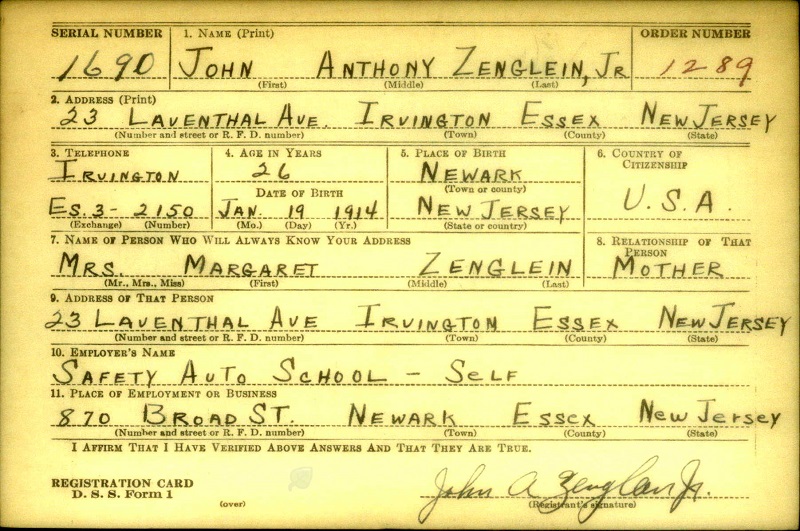 SERIAL NUMBER 1. NAME (Print) ORDER NUMBER
1690 JOHN ANTHONY ZENGLEIN, JR 1289
(First) (Middle) (Last)
2. ADDRESS (Print)
23 LAVENTHAL AVE. IRVINGTON ESSEX NEW JERSEY
(Number and street or R. F. D. number) (Town) (County) (State)
3. TELEPHONE 4. AGE IN YEARS 5. PLACE OF BIRTH 6. COUNTRY OF CITIZENSHIP
IRVINGTON 26 NEWARK
(Town or county)
DATE OF BIRTH U.S.A.
ES. 3-2150 JAN. 19 1914 NEW JERSEY
(Exchange) (Number) (Mo.) (Day) (Yr.) (State or country)
7. NAME OF PERSON WHO WILL ALWAYS KNOW YOUR ADDRESS 8. RELATIONSHIP OF THAT PERSON
MRS. MARGARET ZENGLEIN MOTHER
(Mr., Mrs., Miss) (First) (Middle) (Last)
9. ADDRESS OF THAT PERSON
23 LAVENTHAL AVE IRVINGTON ESSEX NEW JERSEY
(Number and street or R. F. D. number) (Town) (County) (State)
10. EMPLOYER'S NAME
SAFETY AUTO SCHOOL - SELF
11. PLACE OF EMPLOYMENT OR BUSINESS
870 BROAD ST. NEWARK ESSEX NEW JERSEY
(Number and street or R. F. D. number) (Town) (County) (State)
I AFFIRM THAT I HAVE VERIFIED ABOVE ANSWERS AND THAT THEY ARE TRUE.
REGISTRATION CARD
D. S. S. Form 1 John A Zenglein Jr.
(over) (Registrant's signature)